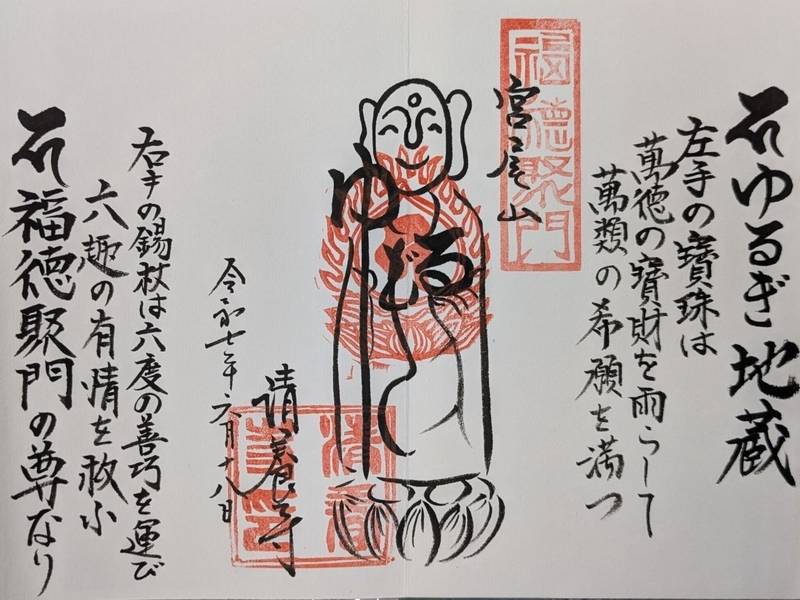 ゆるぎ地蔵
左手の寳珠は
萬徳の寳財を雨らして
萬類の希願を満つ
福徳聚門
宮尾山
ゆる
清養寺
令和七年六月十八日
右手の錫杖は六度の善巧を運び
六趣の有情を救ふ
福徳聚門の尊なり